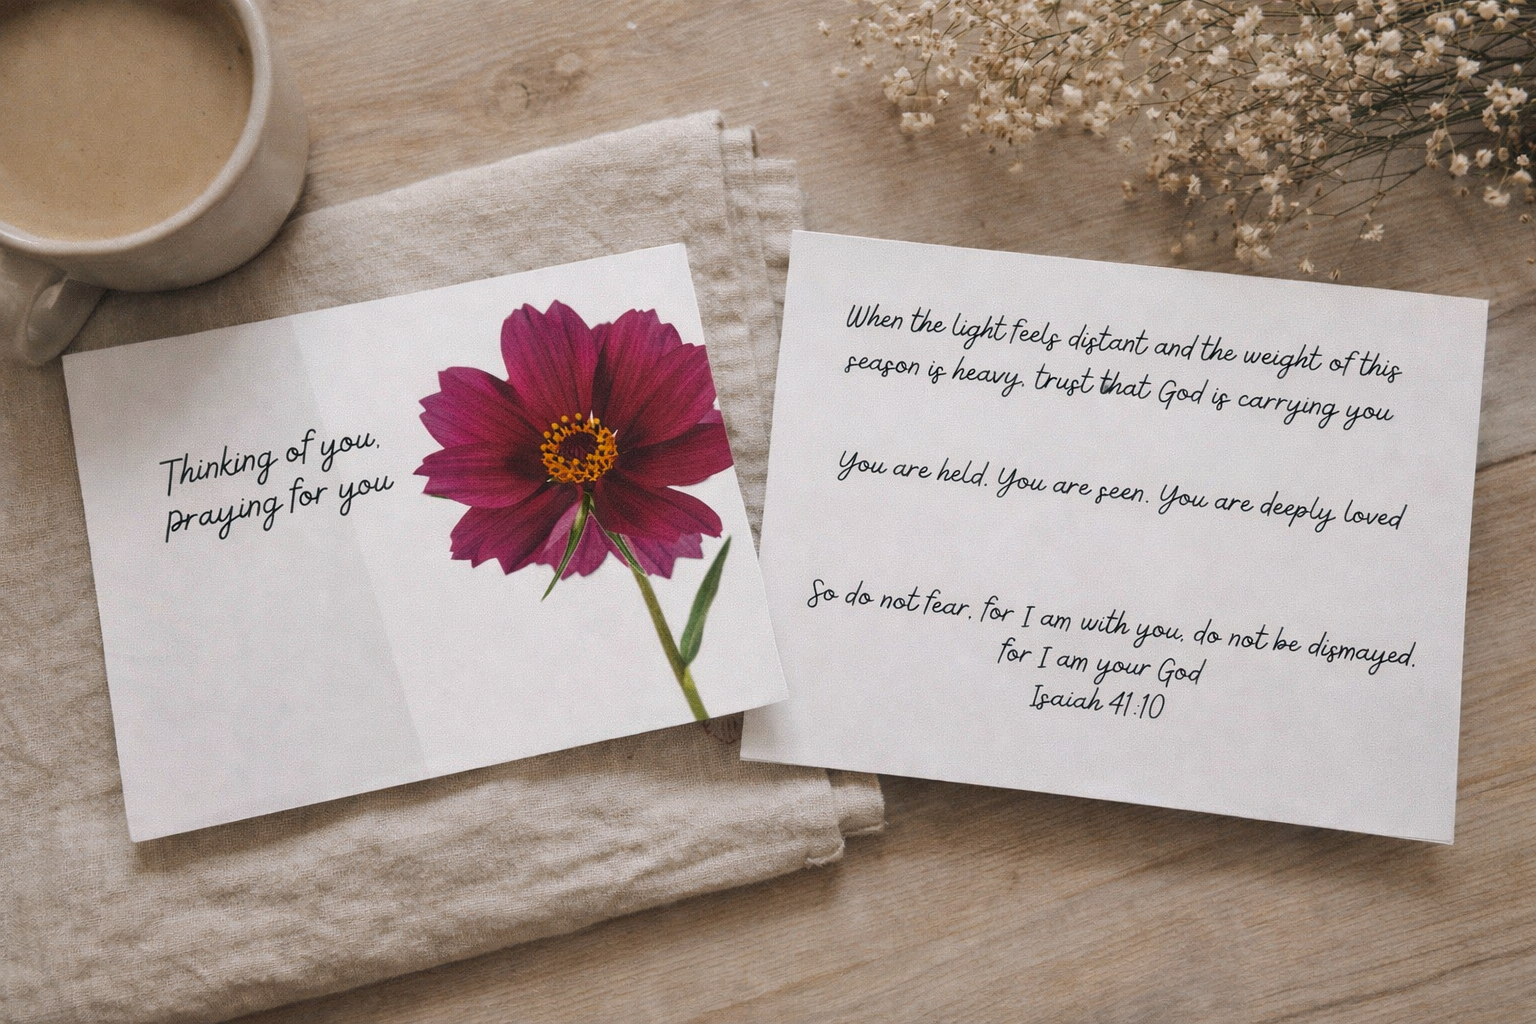 Thinking of you,
praying for you
When the light feels distant and the weight of this
season is heavy, trust that God is carrying you
You are held. You are seen. You are deeply loved
So do not fear, for I am with you, do not be dismayed,
for I am your God
Isaiah 41:10